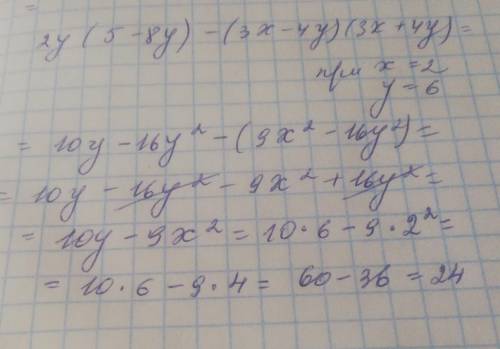 =
2y (5 - 8y) - (3x - 4y)(3x + 4y) =
при x = 2
y = 6
= 10y - 16y² - (9x² - 16y²) =
= 10y - 16y² - 9x² + 16y² =
= 10y - 9x² = 10 · 6 - 9 · 2² =
= 10 · 6 - 9 · 4 = 60 - 36 = 24